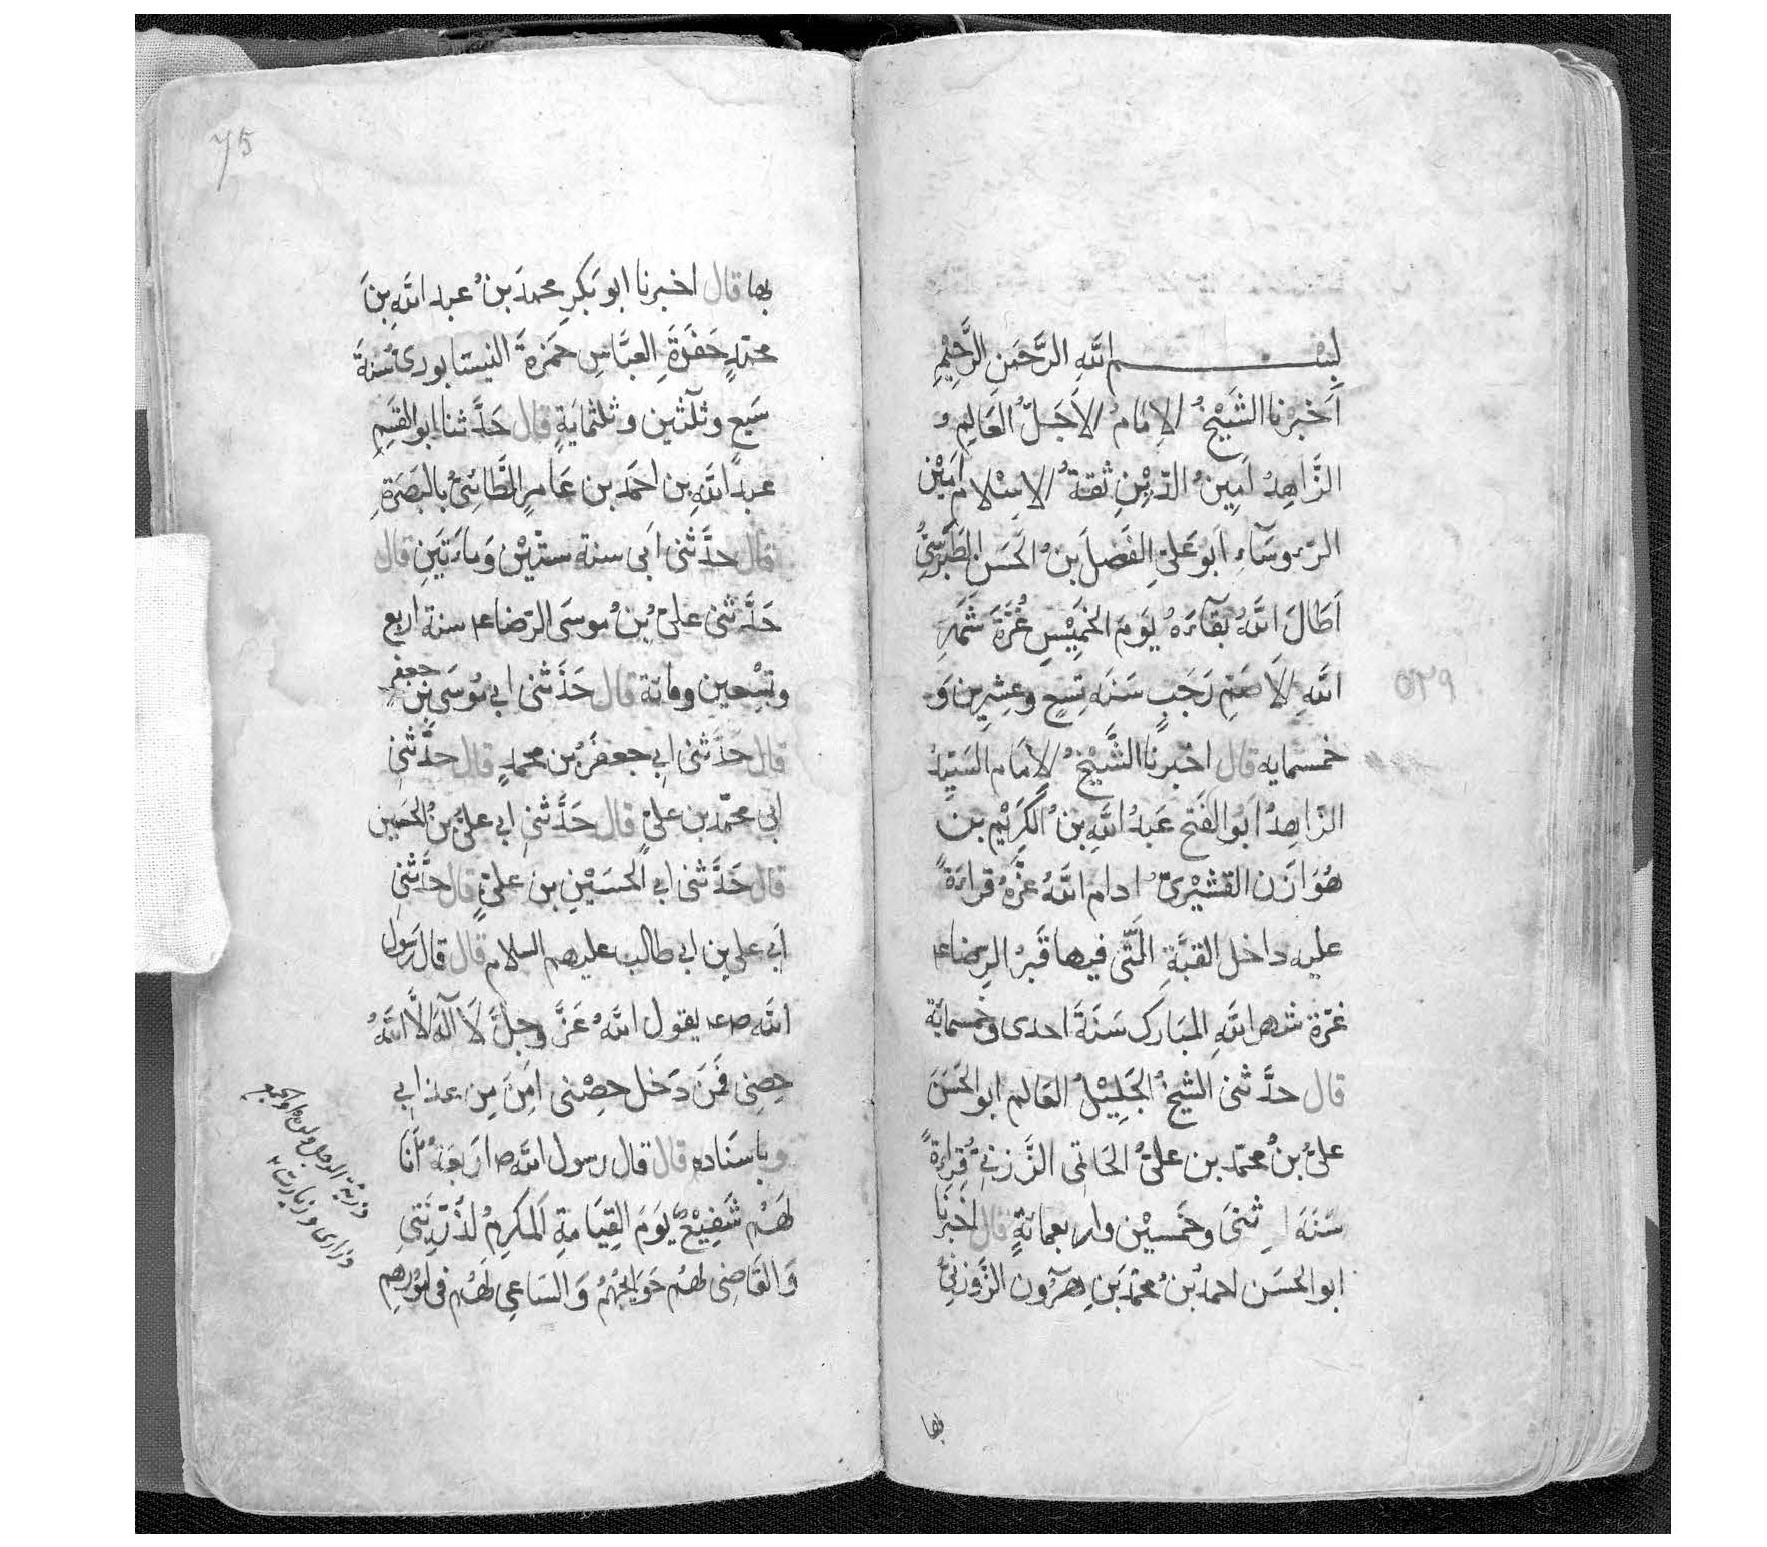 بِسْــــــمِ اللَّهِ الرَّحْمَنِ الرَّحِيْمِ
أَخْبَرَنا الشَّيْخُ الإِمَامُ الاَجَلُّ العَالِمُ
الزَّاهِدُ اَمِينُ الدِّيْنِ ثِقَةُ الاِسْلَامِ اَمِيْن
الرُّوسَآءِ اَبُو عَلىِّ الفَضْلُ بنُ الحَسَنِ الطَّبَرْسِيُّ
اَطَالَ اللَّهُ بَقآءَهُ يَوْمَ الخَمِيْسِ غُرَّةَ شَهْرِ
اللَّهِ الاَصَمِّ رَجَبٍ سَنَه تِسعٍ وعِشرِينَ وَ
٥٢٩
خمسمایه قال اخْبَرنا الشَّيْخُ الاِمَام السَيّدُ
الزاهِدُ اَبُو الفَتحِ عَبدُ اللَّهِ بنُ الكَرِيْمِ بنِ
هَوَازَن القشَيْرىّ ادام اللَّهُ عِزَّهُ قراءةً
عليه داخل القبَّةِ الَّتى فيها قَبْرُ الرضاء ع
غرّة شهر اللَّهِ المبَارك سَنَةَ احدى وخمسمائة
قال حدَّثنى الشيخُ الجَلِيْلُ العَالم ابو الحَسَن
علىُّ بنُ محمّد بن علىٍّ الحَاتمى الزَوزنىُّ قِراءةً
سَنَةَ اِثنىَ وخَمسيْن واربعمائةٍ قال اخبَرنا
ابو الحَسَن احمدُ بنُ محمّدِ بنِ هَرُون الزَّوزنِىُّ
بها
75
بها قال اخبرنا ابو بَكرٍ محمدُ بنُ عبد اللَّهِ بنِ
محمّدٍ حَفَدَةِ العبَّاسِ حَمْزةَ النيسَابورى سُنَةَ
سَبعٍ وثلٰثين وثلثمايَةٍ قال حَدَّثنا ابو القَسِمِ
عبد اللَّهِ بن احمَد بن عَامِرٍ الطَّائىُّ بالبَصرَةِ
قال حدَّثنى اَبى سنة ستّيْن وَماءَتَينِ قال
حَدَّثنى علىّ بُن مُوسَى الرّضاء ع سنة اربع
وتِسْعِين ومائة قال حَدَّثنى ابي مُوسَى بنُ جعفر
قال حَدَّثنى ابِي جعفَرُ بن محمّدٍ قال حدَّثنِى
ابى محمّد بن علىٍّ قال حَدَّثنى ابي علىُّ بنُ الحُسَين
قال حَدَّثنى ابي الحُسَيْنِ بن علىٍّ قال حدَّثنى
اَبي على بن ابي طالب عليهم السلام قال قال رَسول
اللَّه ص ع يقول اللَّهُ عَزَّ وجلَّ لَا اِلٰهَ الَّا اللَّهُ
حِصنِى فمَنْ دَخل حِصْنى اَمِنَ مِن عذابي
وباسنَاده قال قال رسول اللَّه ص اربَعَةٌ اَنَا
لَهُم شَفِيْعٌ يَومَ القِيَامةِ المكرِمُ لذُرّيَّتى
وَالقَاضِى لهُم حَوَائجهُمْ وَالسَاعِي لَهُم فى امُورهِم
ذرية الرجل ولده والجمع
ذرارى وذريات